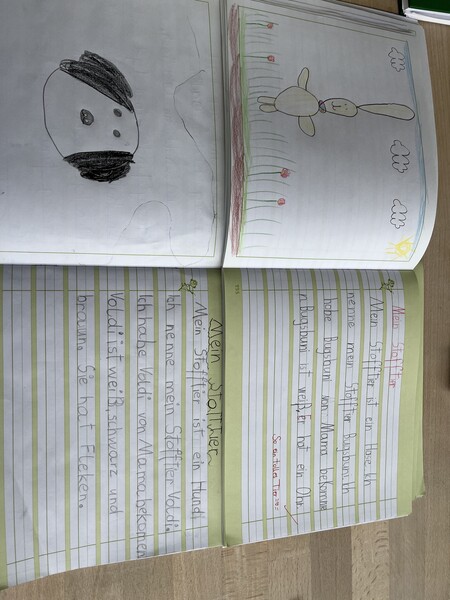 Mein Stofftier
Mein Stofftier ist ein Hase. Ich
nenne mein Stofftier Bugsbuni. Ich
habe Bugsbuni von Mama bekomme
n Bugsbuni ist weiß. Er hat ein Ohr.
So ein tolles Tier
Mein Stofftier
Mein Stofftier ist ein Hund
Ich nenne mein Stofftier Voldi.
Ich habe Voldi von Mama bekomen
Voldi ist weiß, schwarz und
braun. Sie hat Fleken.